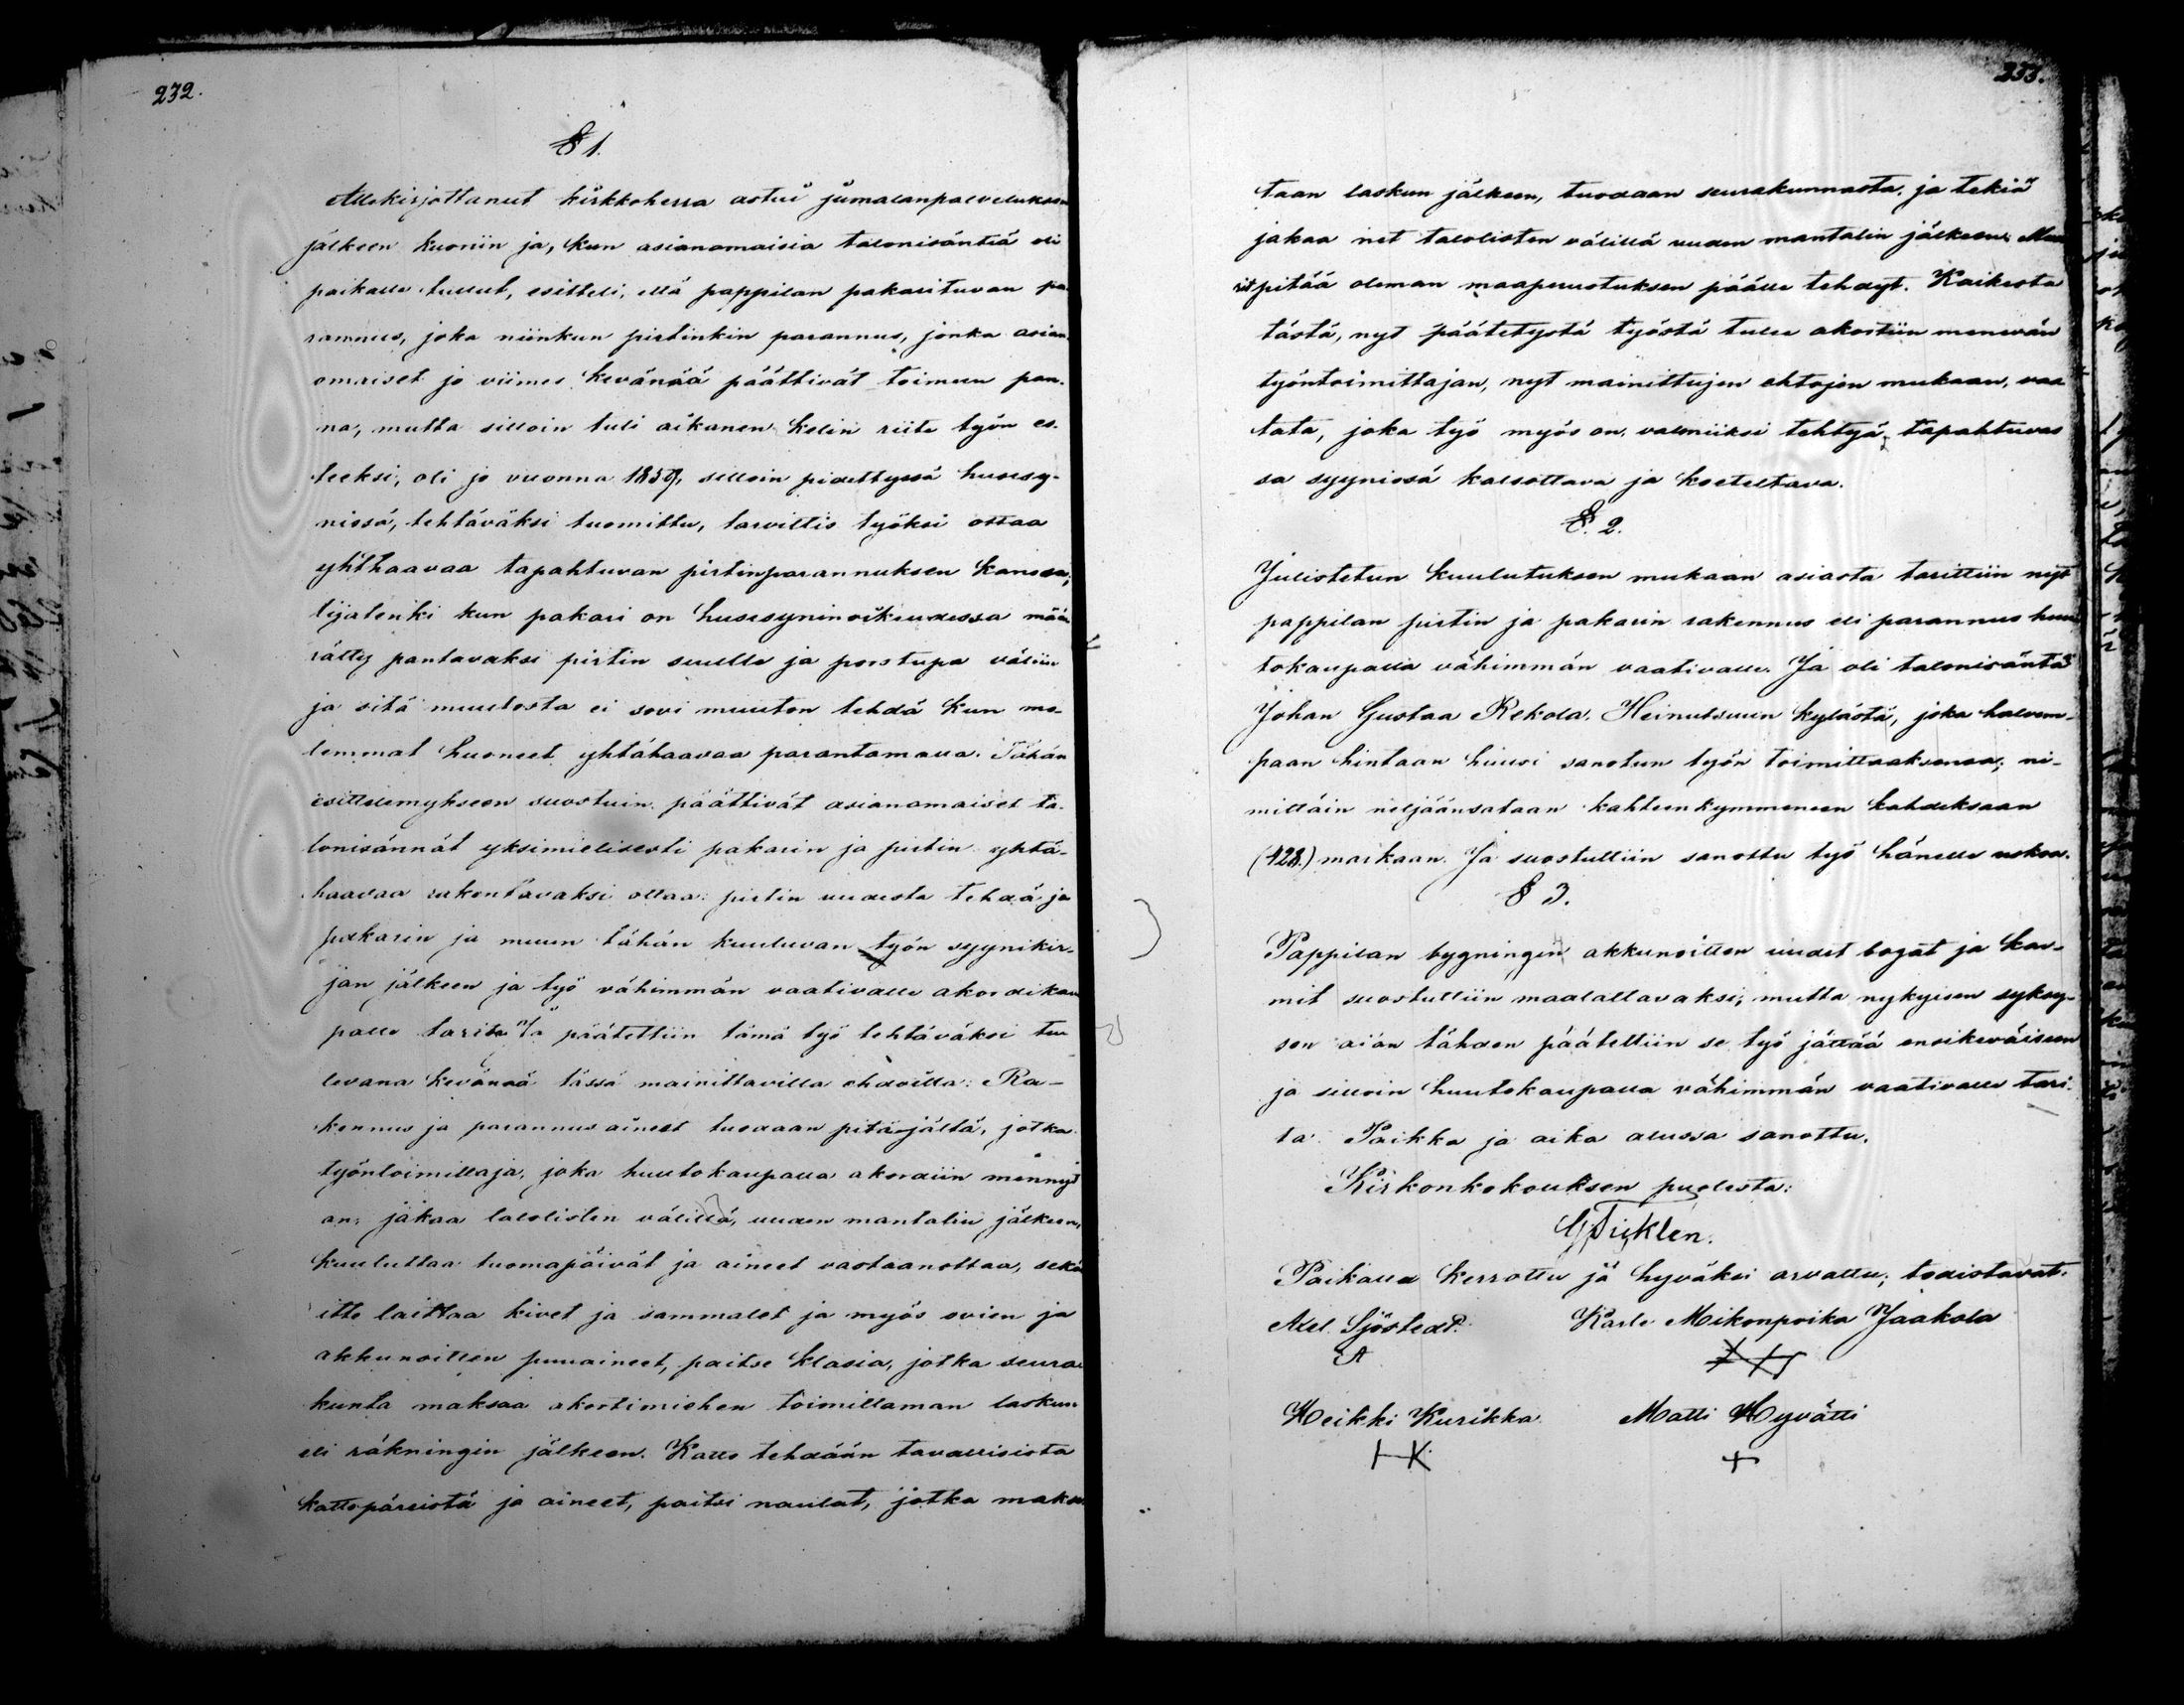 232.
§ 1.
Allekirjottanut kirkkoherra astui jumalanpalveluksen
jälkeen kuoriin ja, kun asianomaisia talonisäntiä oli
paikalle tullut, esitteli, että pappilan pakarituvan pa
rannus, joka niinkun pirtinkin parannus, jonka asian
omaiset jo viimes kevänää päättivät toimeen pan-
na, mutta silloin tuli aikanen kelin riite työn es-
teeksi, oli jo vuonna 1859, silloin pidettyssä husesy-
nissä, tehtäväksi tuomittu, tarvittis työksi ottaa
yhthaavaa tapahtuvan pirtinparannuksen kanssa,
lijatenki kun pakari on husesyninoikeudessa mää
rätty pantavaksi pirtin suulle ja porstupa väliin
ja sitä muutosta ei sovi muuton tehdä kun mo-
lemmat huoneet yhtähaavaa parantamalla. Tähän
esittelemykseen suostuin päättivät asianomaiset ta-
lonisännät yksimielisesti pakarin ja pirtin yhtä-
haavaa rakentavaksi ottaa: pirtin uudesta tehdä ja
pakarin ja muun tähän kuuluvan työn syynikir-
jan jälkeen ja työ vähimmän vaativalle akordikau
palle tarita Ja päätettiin tämä työ tehtäväksi tu
levana kevännä tässä mainittavilla ehdoilla: Ra-
kennus ja parannus aineet tuodaan pitäjältä, jotka
työntoimittaja, joka huutokaupalla akordiin mennyt
on; jakaa talolisten välillä, uuden mantalin jälkeen,
kuuluttaa tuomapäivät ja aineet vastaanottaa, sekä
itte laittaa kivet ja sammalet ja myös ovien ja
akkunoitten puuaineet, paitse klasia, jotka seura
kunta maksaa akortimiehen toimittaman laskun
eli räkningin jälkeen. Katto tehdään tavallisista
kattopäreistä ja aineet, paitsi naulat, jotka makse
233.
taan laskun jälkeen, tuodaan seurakunnasta, ja tekiä
jakaa net talolisten välillä uuden mantalin jälkeen. Muu
rit pitää oleman maaperustuksen päälle tehdyt. Kaikesta
tästä, nyt päätetystä työstä tulee akortiin menevän
työntoimittajan, nyt mainittujen ehtojen mukaan, vas
tata, joka työ myös on, valmiiksi tehtyä, tapahtuvas
sa syynissä katsottava ja koeteltava.
§. 2.
Julistetun kuulutuksen mukaan asiasta tarittiin nyt
pappilan pirtin ja pakarin rakennus eli parannus huu
tokaupalla vähimmän vaativalle. Ja oli talonisäntä
Johan Gustaa Rekola. Heinutsuun kylästä, joka halvem-
paan hintaan huusi sanotun työn toimittaaksensa; ni-
mittäin neljäänsataan kahteenkymmeneen kahdeksaan
(428.) markaan. Ja suostuttiin sanottu työ hänelle uskoa.
§ 3.
Pappilan bygningin akkunoitten uudet bogat ja kar-
mit suostuttiin maalattavaksi; mutta nykyisen syksy-
sen aian tähden päätettiin se työ jättää ensikeväiseen
ja silloin huutokaupalla vähimmän vaativalle tari-
ta. Paikka ja aika alussa sanottu.
Kirkonkokouksen puolesta:
Paikalla kerrottu ja hyväksi arvattu; todistavat.
Axel. Sjöstedt. Karle Mikonpoika Jaakola
A
Heikki Kurikka Matti Hyvätti
HK +